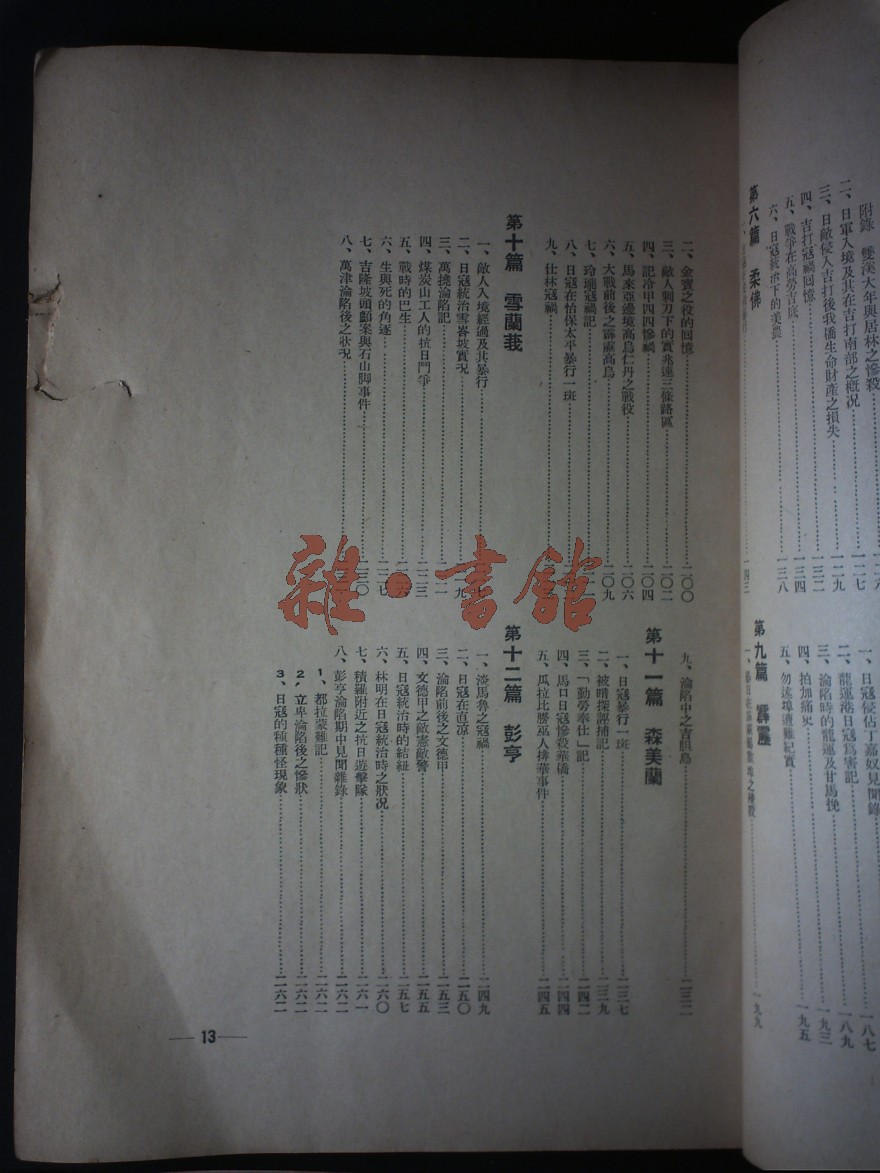 附錄　雙溪大年與居林之慘殺
二、日軍入境及其在吉打南部之概况……一二七
三、日敵侵入吉打後我僑生命財產之損失……一二九
四、吉打寇禍回憶……一三二
五、戰爭在高勞吉底……一三四
六、日寇統治下的美農……一三八
第六篇　柔佛
一四三
一、日寇侵佔丁嘉奴見聞錄……一八七
二、龍運港日寇爲害記……一八九
三、淪陷時的龍運及甘馬挽……一九三
四、拍加痛史……一九五
五、勿述埠遭難紀實……一九九
第九篇　霹靂
二、金寶之役的回憶……二〇〇
三、敵人刺刀下的實兆遠三條路區……二〇二
四、記冷甲四四慘禍……二〇四
五、馬來亞邊境高烏仁丹之戰役……二〇六
六、大戰前後之霹靂高烏……二〇九
七、玲瓏寇禍記
八、日寇在怡保太平暴行一斑
九、仕林寇禍
第十篇　雪蘭莪
一、敵人入境經過及其暴行
二、日寇統治雪峇坡實况
三、萬撓淪陷記
四、煤炭山工人的抗日鬥爭……二二三
五、戰時的巴生
六、生與死的角逐……二二七
七、吉隆坡頭顱案與石山脚事件……二三〇
八、萬津淪陷後之狀况
九、淪陷中之吉胆島……二三二
第十一篇　森美蘭
一、日寇暴行一斑……二三七
二、被暗探誣捕記……二三九
三、「勤勞奉仕」記……二四二
四、馬口日寇慘殺華僑……二四四
五、瓜拉比勝巫人排華事件……二四五
第十二篇　彭亨
一、淡馬魯之寇禍……二四九
二、日寇在直凉……二五〇
三、淪陷前後之文德甲……二五三
四、文德甲之敵憲敵警……二五五
五、日寇統治時的結紐……二五七
六、林明在日寇統治時之狀况……二六〇
七、積羅附近之抗日遊擊隊……二六一
八、彭亨淪陷期中見聞雜錄……二六二
1、都拉蒙難記……二六二
2，立卑淪陷後之慘狀……二六二
3、日寇的種種怪現象……二六二
— 13 —
雜·書館